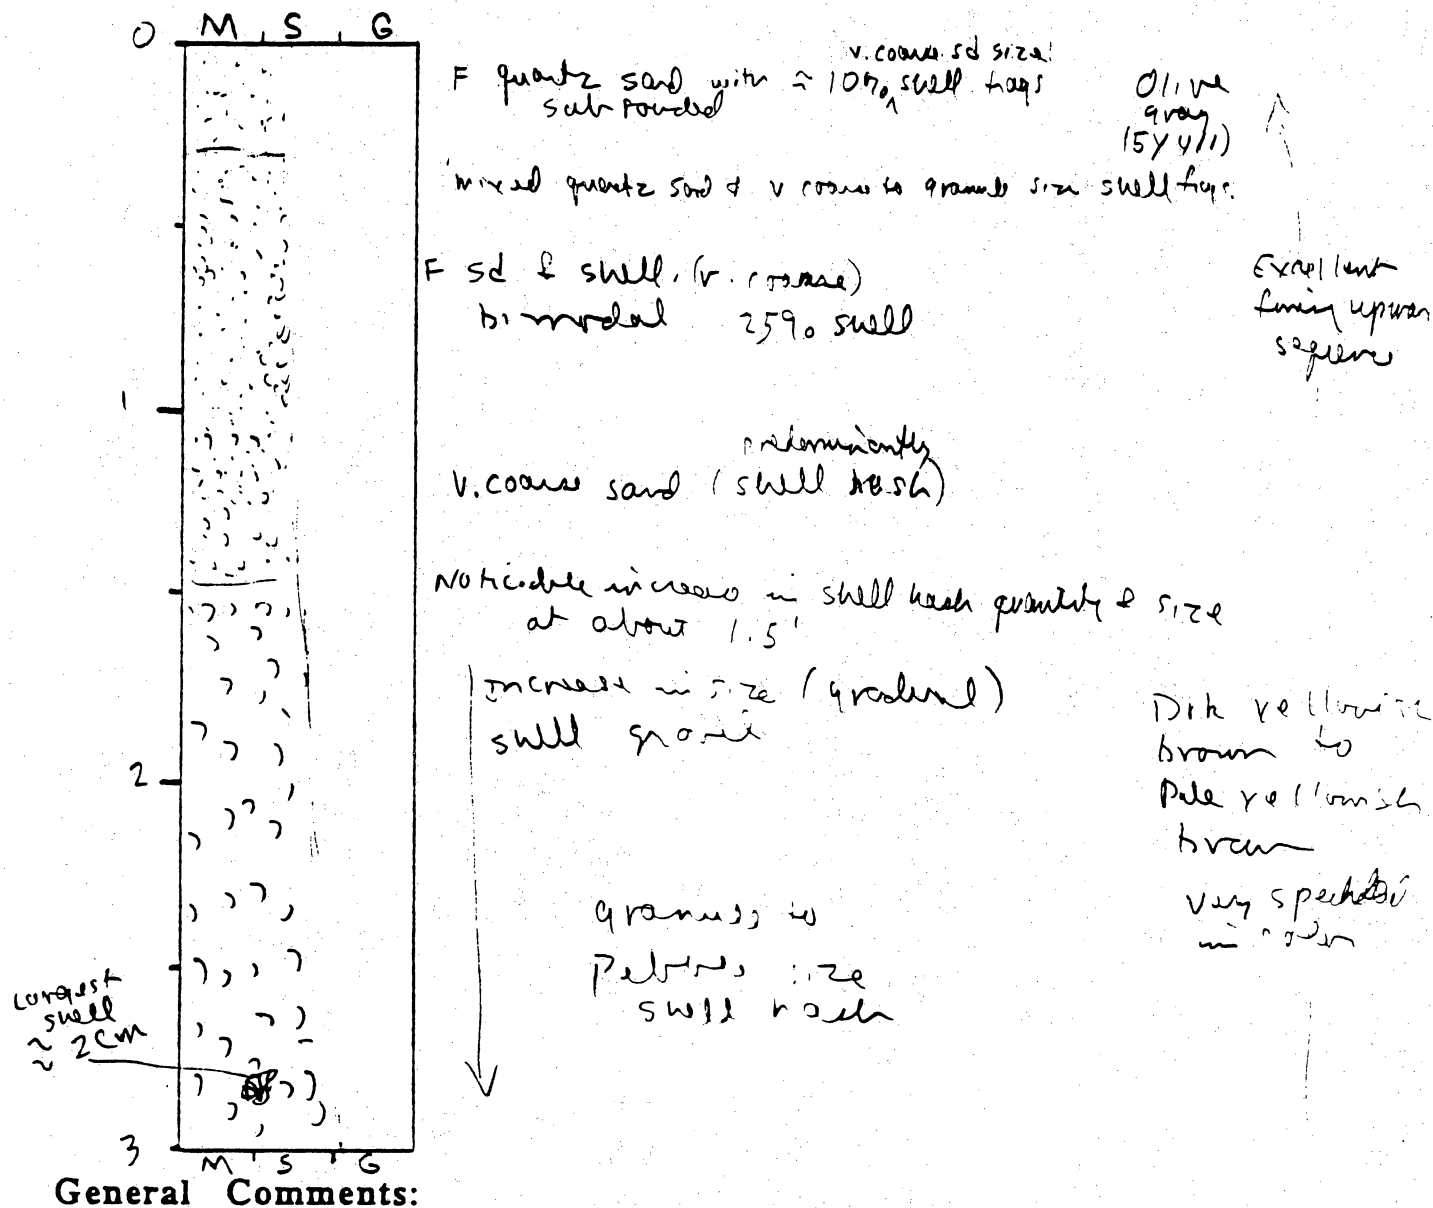 0 M S G
v. coarse sd size
F quartz sand with ≈ 10% shell frags
sub rounded
Olive
gray
(5Y 4/1)
mixed quartz sand & v coarse to granule size shell frags.
F sd & shell (v. coarse)
bimodal 25% shell
Excellent
fining upward
sequence
1
predominantly
V. coarse sand (shell hash)
Noticeable increase in shell hash quantity & size
at about 1.5'
Increase in size (gradual)
shell
2
Drk yellowish
brown to
Pale yellowish
brown
very speckled
in color
granules to
Pebbles size
shell hash
Largest
shell
≈ 2cm
3
M S G
General Comments: